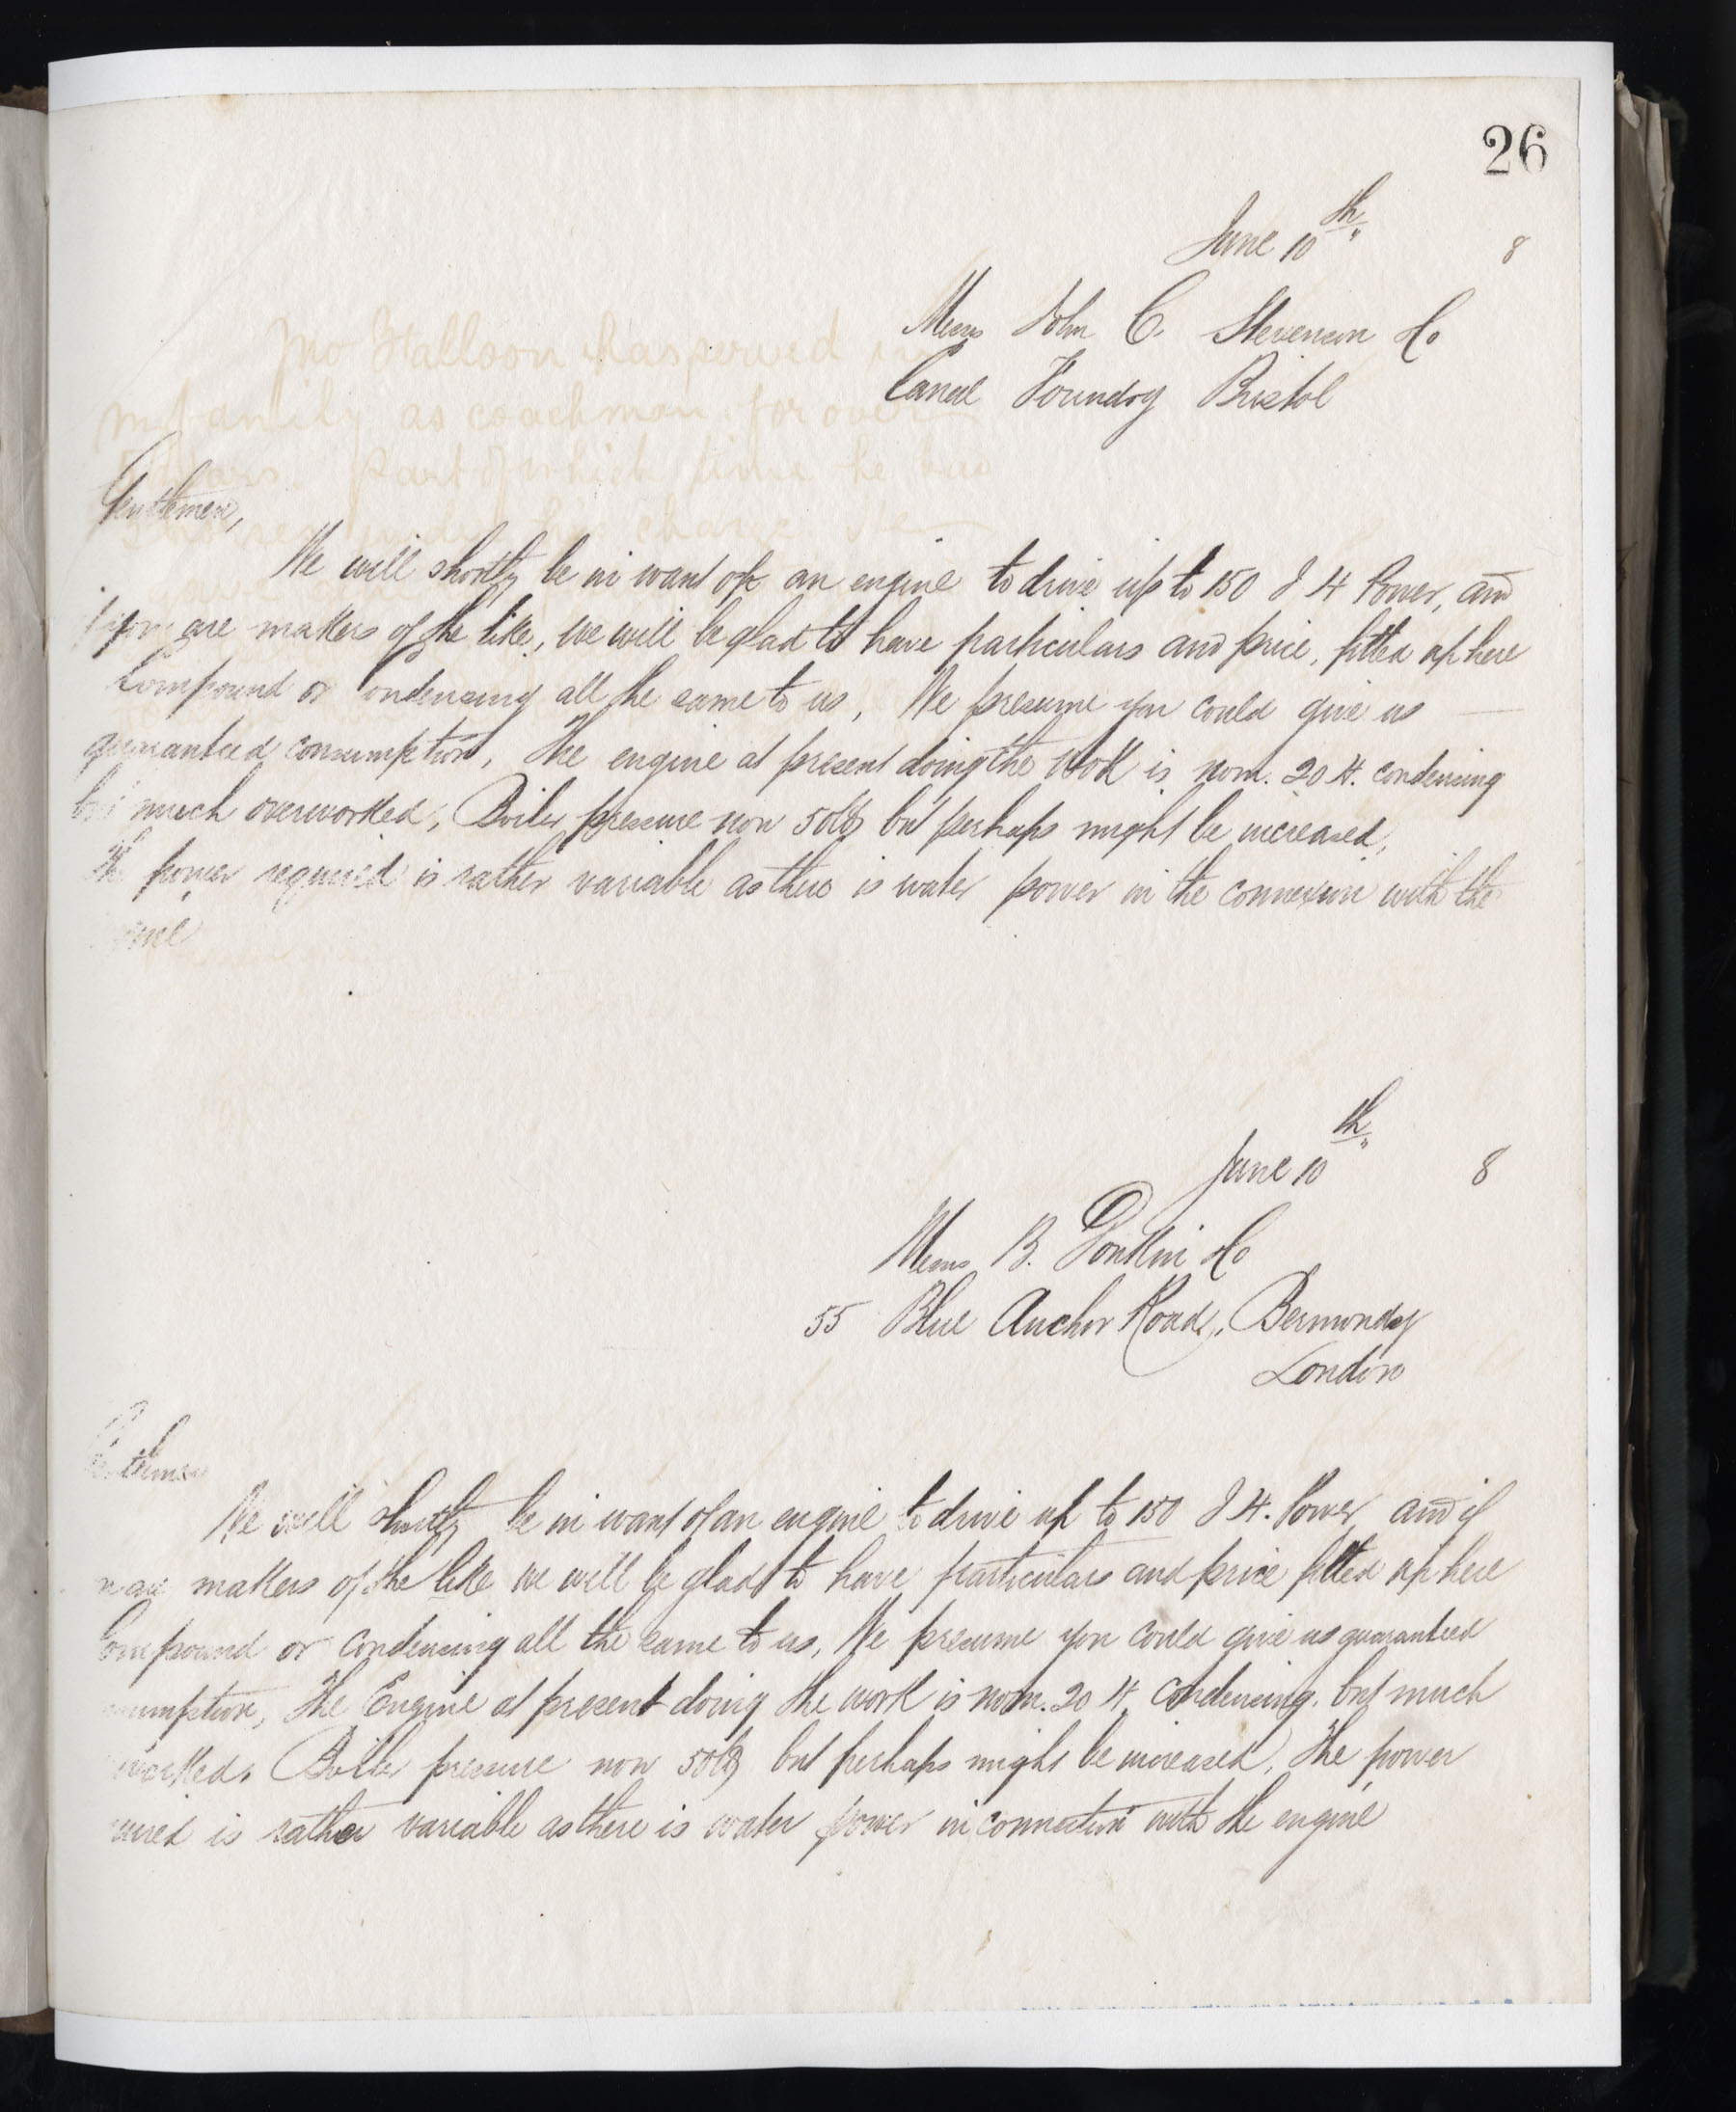 26
June 10th 8
Messrs John C. Stevenson & Co
Canal Foundry Bristol
Jno Stalloon has served in
my family as coachman for over
years. Part of which time he had
charge
Gentlemen,
We will shortly be in want of an engine to drive up to 150 I H Power, and
if you are makers of the like, we will be glad to have particulars and price, fitted up here
Compound or Condensing all the same to us, We presume you could give us
guaranteed consumption, The engine at present doing the work is nom. 20 H. condensing
but much overworked, Boiler pressure now 50 lbs but perhaps might be increased,
The power required is rather variable as there is water power in the connexion with the
June 10th 8
Messrs B. Donkin & Co
55 Blue Anchor Road, Bermondsy
London
Gentlemen
We will shortly be in want of an engine to drive up to 150 I H. Power and if
you are makers of the like we will be glad to have particulars and price fitted up here
Compound or condensing all the same to us, We presume you could give us guaranteed
sumption, The Engine at present doing the work is nom. 20 H. condensing, but much
worked. Boiler pressure now 50 lbs but perhaps might be increased, The power
uired is rather variable as there is water power in connection with the engine